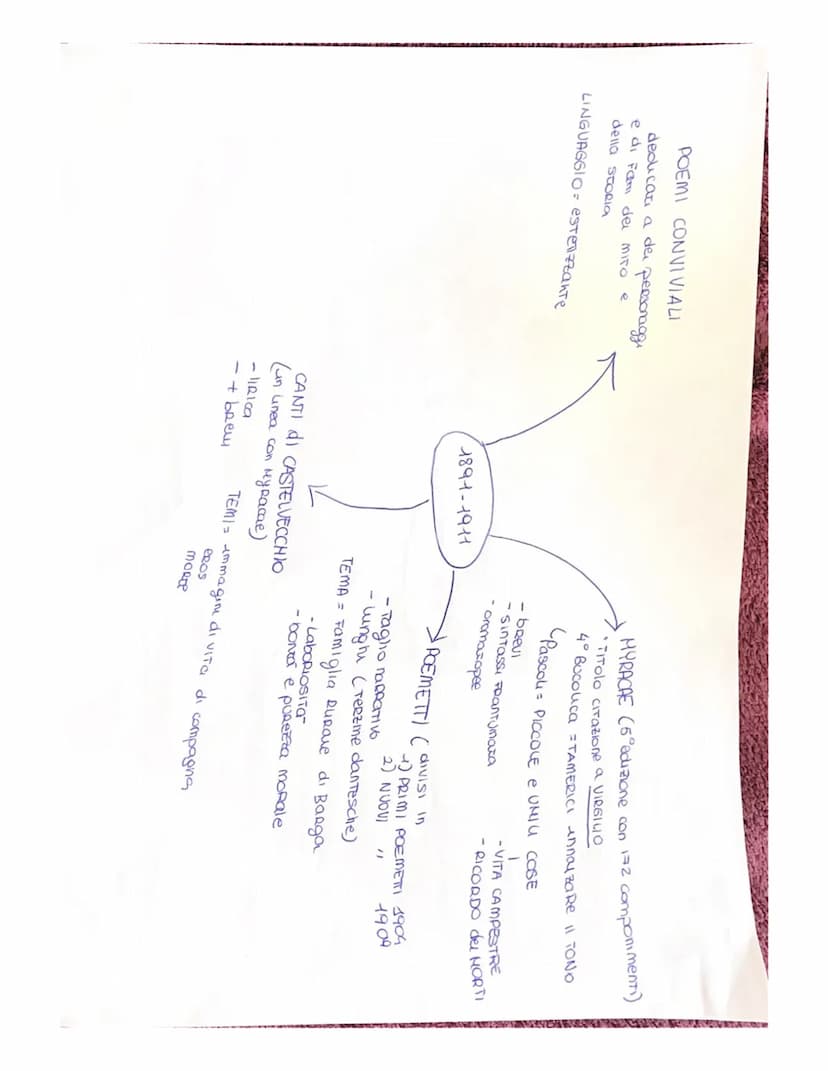 POEMI CONVIVIALI
dedicati a dei personaggi
e di fatti del mito e
della storia
LINGUAGGIO = estetizzante
1891-1911
MYRACAE (5° edizione con 172 componimenti)
• Titolo citazione a VIRGILIO
4° Bucolica = TAMERICI innalzare il TONO
(Pascoli = PICCOLE e UMILI COSE
- brevi
- sintassi frantumata
- onomatopee
- VITA CAMPESTRE
- RICORDO dei MORTI
POEMETTI (divisi in
1) PRIMI POEMETTI 1904
2) NUOVI " 1909
- Taglio narrativo
- lunghi (terzine dantesche)
TEMA = Famiglia RURALE di Barga
- Laboriosità
- bontà e purezza morale
CANTI di CASTELVECCHIO
(in linea con Myracae)
- lirica
- + brevi
TEMI = immagini di vita di campagna
eros
morte